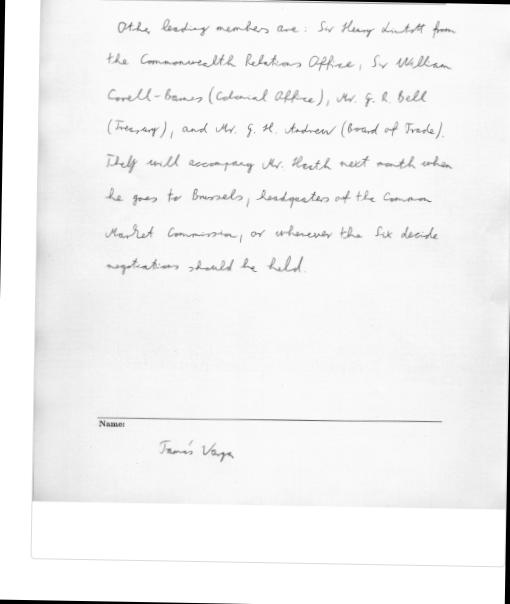 Other leading members are: Sir Henry Lintott from
the Commonwealth Relations Office, Sir William
Gorell-Barnes (Colonial Office), Mr. G. R. Bell
(Treasury), and Mr. G. H. Andrew (Board of Trade).
They will accompany Mr. Heath next month when
he goes to Brussels, headquaters of the Common
Market Commission, or whenever the Six decide
negotiations should be held.
Name:
Tamás Varga